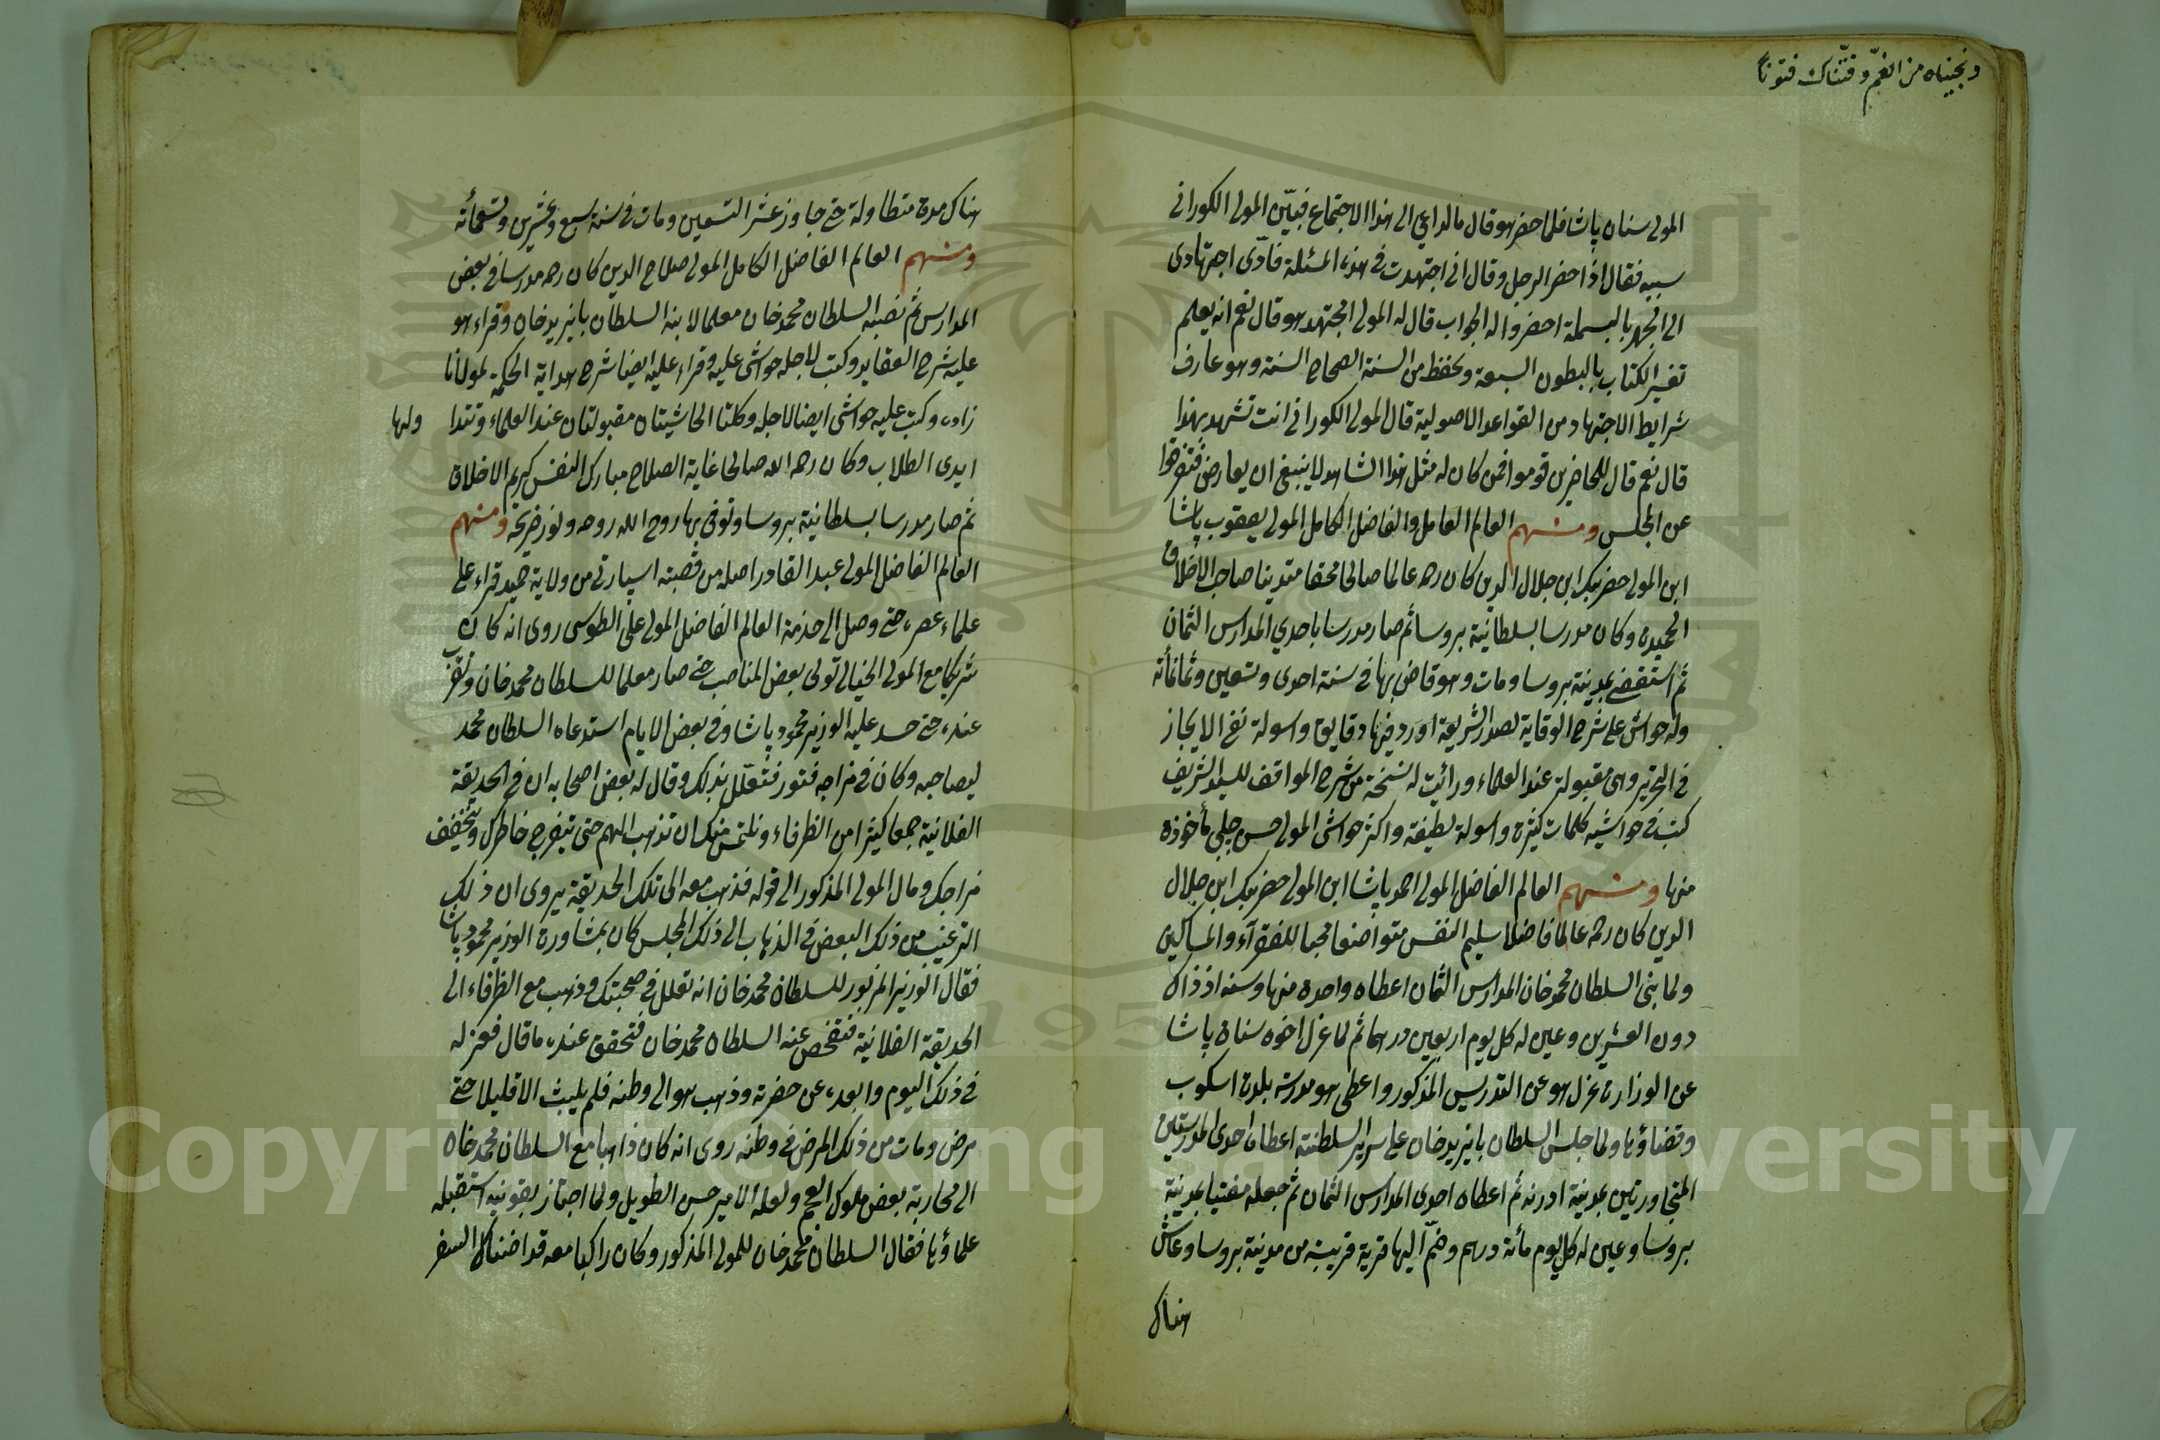 ونجيناه من الغم وفتناك فتونا
المولى سنان پاشا فلما حضر هو قال ما الداعي الى هذا الاجتماع فبيّن المولى الكوراني
سببه فقال اذا حضر الرجل وقال اني اجتهدت في هذه المسئلة فادّى اجتهادى
الى الجهر بالبسملة احضروا له الجواب قال له المولى المجتهد هو قال نعم انه يعلم
تفسير الكتاب بالبطون السبعة ويحفظ من السنة الصحاح الستة وهو عارف
شرايط الاجتهاد من القواعد الاصولية قال المولى الكوراني انت تشهد بهذا
قال نعم قال للحاضرين قوموا فمن كان له مثل هذا الشاهد لا ينبغي ان يعارض فتفرقوا
عن المجلس ومنهم العالم العامل والفاضل الكامل المولى يعقوب پاشا
ابن المولى حضر بك ابن جلال الدين كان رحمه عالما صالحا محققا متدينا صاحب الاخلاق
الحميدة وكان مدرسا بسلطانية بروسا ثم صار مدرسا باحدي المدارس الثمان
ثم استقضى بمدينة بروسا ومات وهو قاض بها في سنة احدى وتسعين وثمانمأئة
وله حواش على شرح الوقاية لصدر الشريعة اورد فيها دقايق واسولة مع الايجاز
في التحرير وهى مقبولة عند العلماء ورائيت له نسخة من شرح المواقف للسيد الشريف
كتب في حواشيه كلمات كثيرة واسولة لطيفة واكثر حواشى المولى حسن چلبي مأخوذة
منها ومنهم العالم الفاضل المولى احمد پاشا ابن المولى حضر بك ابن جلال
الدين كان رحمه عالما فاضلا سليم النفس متواضعا محبا للفقرآء والمساكين
ولما بنى السلطان محمد خان المدارس الثمان اعطاه واحدة منها وسنه اذ ذاك
دون العشرين وعين له كل يوم اربعين درهما ثم لما عزل اخوه سنان پاشا
عن الوزارة عزل هو عن التدريس المذكور واعطى هو مدرسة بلدة اسكوب
وقضاؤها ولما جلس السلطان بايزيد خان على سرير السلطنة اعطاه احدى المدرستين
المتجاورتين بمدينة ادرنه ثم اعطاه احدى المدارس الثمان ثم جعله مفتيا بمدينة
بروسا وعين له كل يوم مأئة درهم وضمّ اليها قرية قريبة من مدينة بروسا وعاش
هناك
هناك مدة متطاولة حتى جاوز عشر التسعين ومات في سنة سبع وعشرين وتسعمأئة
ومنهم العالم الفاضل الكامل المولى صلاح الدين كان رحمه مدرسا في بعض
المدارس ثم نصبه السلطان محمد خان معلما لابنه السلطان بايزيد خان وقراء هو
عليه شرح العقايد وكتب لاجله حواشى عليه وقراء عليه ايضا شرح هداية الحكمة لمولانا
زاده وكتب عليه حواشى ايضا لاجله وكلتا الحاشيتان مقبولتان عند العلماء وتتدا ولها
ايدى الطلاب وكان رحمه الله صالحا غاية الصلاح مبارك النفس كريم الاخلاق
ثم صار مدرسا بسلطانية بروسا وتوفى بها روح الله روحه ونور ضريحه ومنهم
العالم الفاضل المولى عبد القادر اصله من قصبة اسپارتى من ولاية حميد قراء على
علماء عصره حتى وصل الى خدمة العالم الفاضل المولى على الطوسى روى انه كان
شريكا مع المولى الخيالى تولى بعض المناصب حتى صار معلما للسلطان محمد خان وتقرب
عنده حتى حسد عليه الوزير محمود پاشا وفي بعض الايام استدعاه السلطان محمد
ليصاحبه وكان في مزاجه فتور فتعلل بذلك وقال له بعض اصحابه ان في الحديقة
الفلانية جمعا كثيرا من الظرفاء ونلتمس منك ان تذهب اليهم حتى يتفرج خاطرك ويتخفف
مزاجك ومال المولى المذكور الى قوله فذهب معه الى تلك الحديقة يروى ان ذلك
الترغيب من ذلك البعض في الذهاب الى ذلك المجلس كان بمشاورة الوزير محمود پاشا
فقال الوزير المزبور للسلطان محمد خان انه تعلل في صحبتك وذهب مع الظرفاء الى
الحديقة الفلانية فتفحص عنه السلطان محمد خان فتحقق عنده ما قال فعزله
في ذلك اليوم وابعده عن حضرته وذهب هو الى وطنه فلم يلبث الا قليلا حتى
مرض ومات من ذلك المرض في وطنه روى انه كان ذاهبا مع السلطان محمد خان
الى محاربة بعض ملوك العجم ولعله الامير حسن الطويل ولما اجتاز بقونيه استقبله
علماؤها فقال السلطان محمد خان للمولى المذكور وكان راكبا معه قد اضناك السفر
1957
Copyright © King Saud University